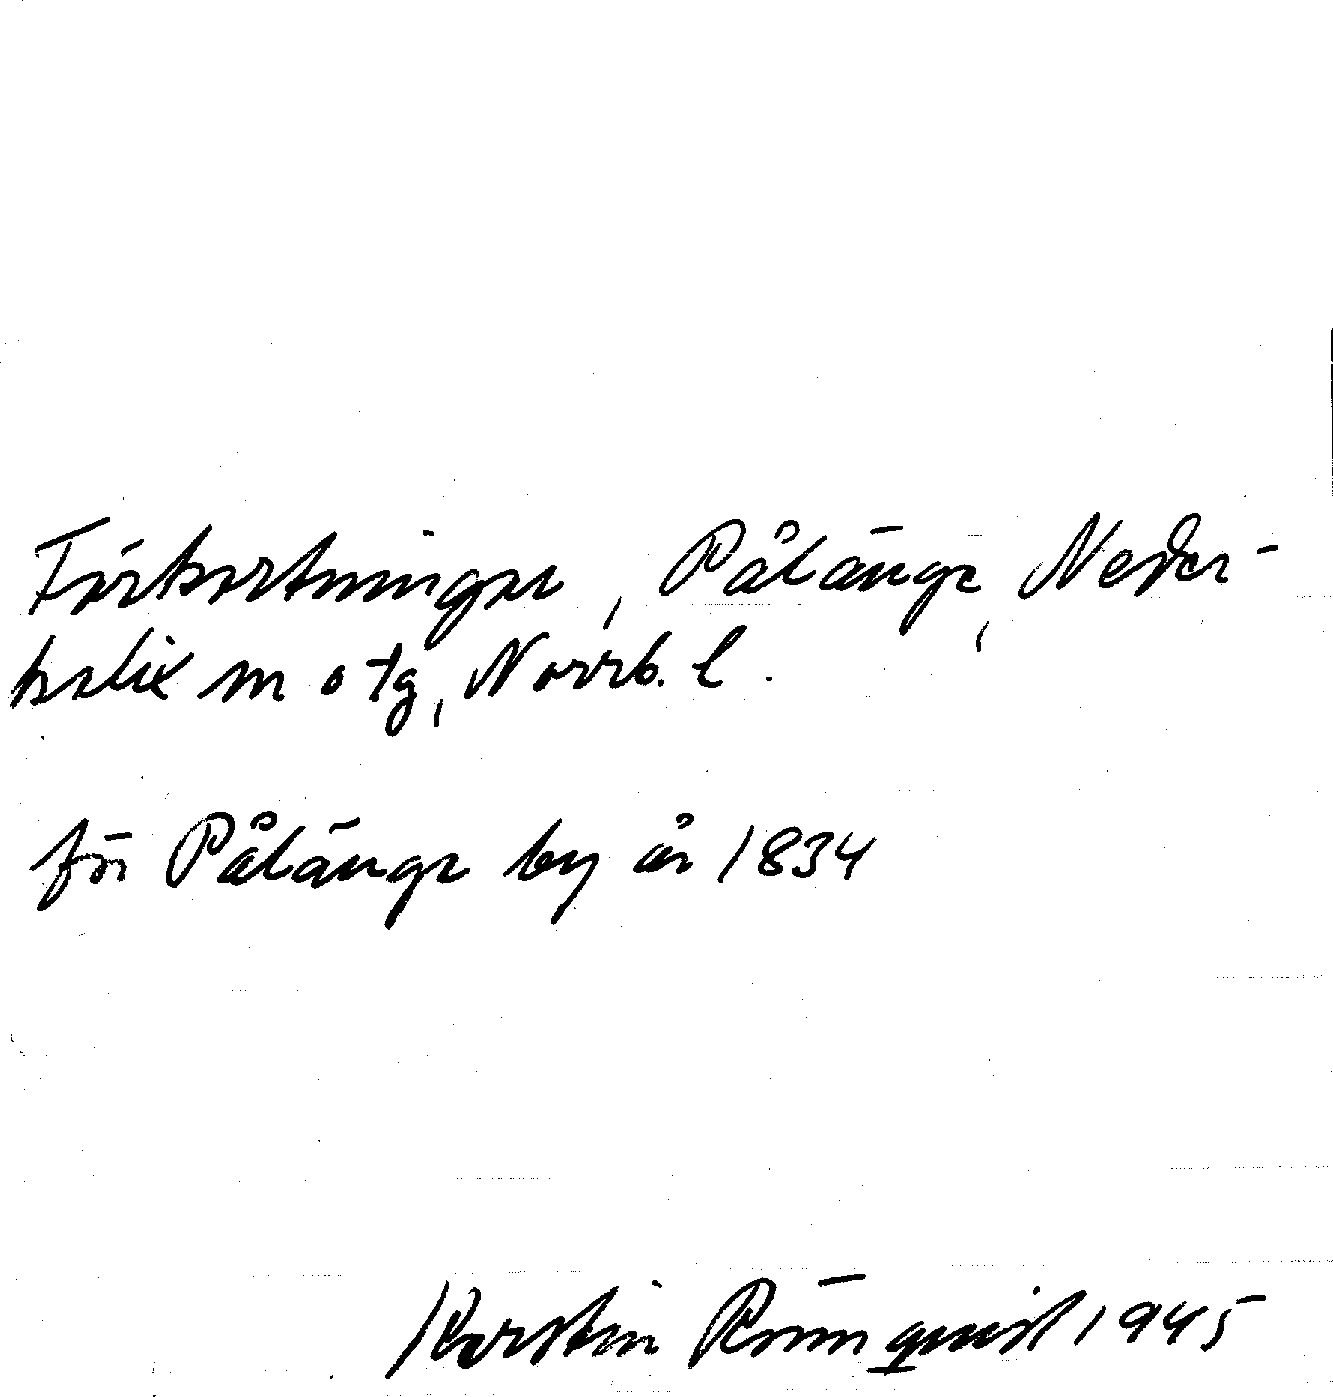 Förkortningar, Pålänge, Neder-
kalix m o tg, Norrb. l.
för Pålänge by år 1834
Kerstin Rönnquist 1945